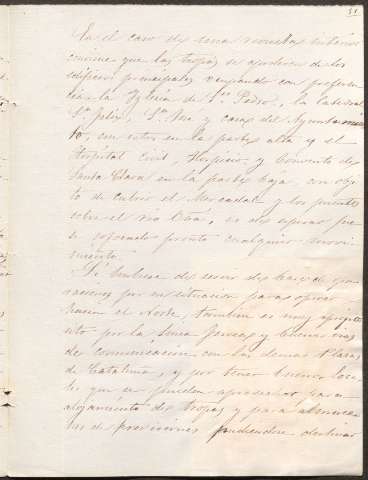 51
En el caso de una revuelta interior
conviene que las tropas se apoderen de los
edificios principales ocupando con preferen
cia la Yglesia de Sn. Pedro, la Catedral
Sn. Felix, Sn. y casa del Ayuntamien
to, con estos en la parte alta y el
Hospital Civil, Hospicio y Convento de
Santa Clara en la parte baja, con obje
to de cubrir el Mercadal y los puentes
sobre el rio Oña, es de esperar fue
se sofocado pronto cualquier movi
miento.
Si hubiese de servir de base de ope
raciones por su situacion para operar
hacia el Norte, tambien es muy aproposito
por la linea ferrea y buenas vias
de comunicacion con las demas Plazas
de Cataluña, y por tener buenos loca
les que se pueden aprovechar para
alojamiento de tropas y para almace
nes de provisiones pudiendose destinar